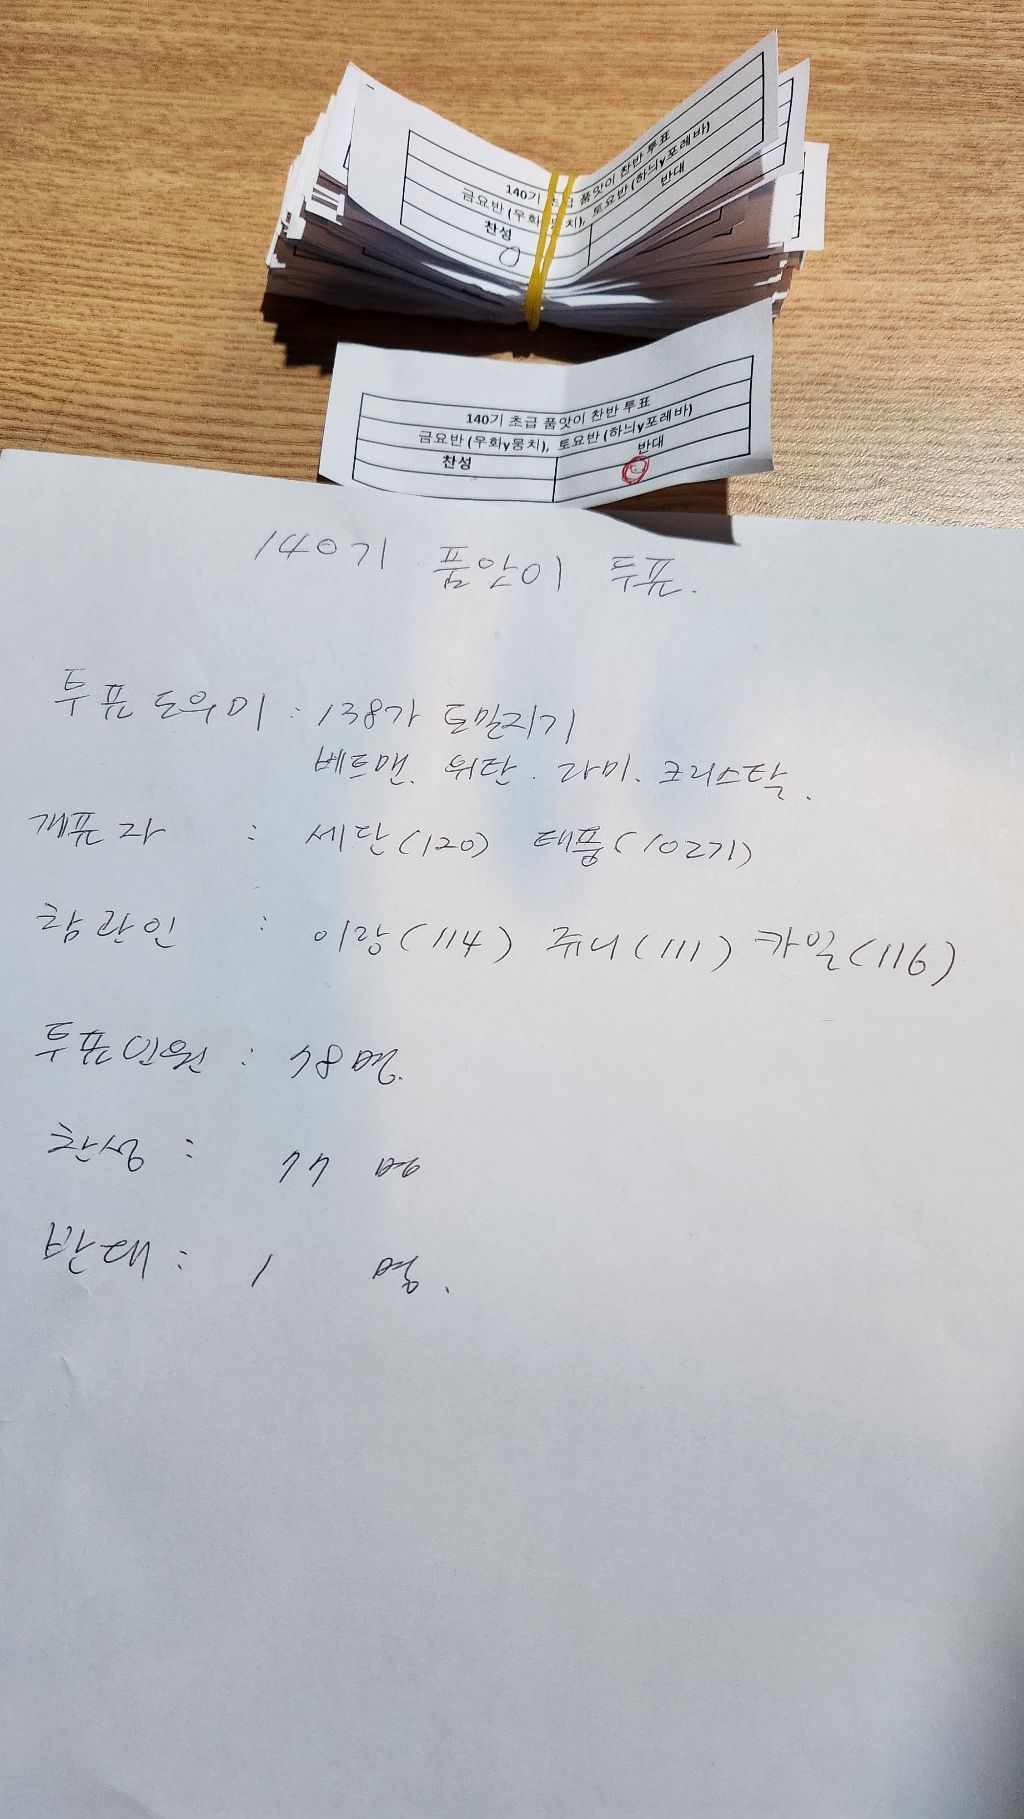 140기 초급 품앗이 찬반 투표
금요반 (우화y뭉치), 토요반 (하늬y포레바)
찬성 반대
140기 초급 품앗이 찬반 투표
금요반 (우화y뭉치), 토요반 (하늬y포레바)
찬성 반대
140기 품앗이 투표.
투표도우미 : 138기 토밀지기
베트맨. 위단. 라미. 크리스탈.
개표자 : 세단(120) 태풍(102기)
참관인 : 이랑(114) 쥬니(111) 카일(116)
투표인원 : 78명.
찬성 : 77 명
반대 : 1 명.